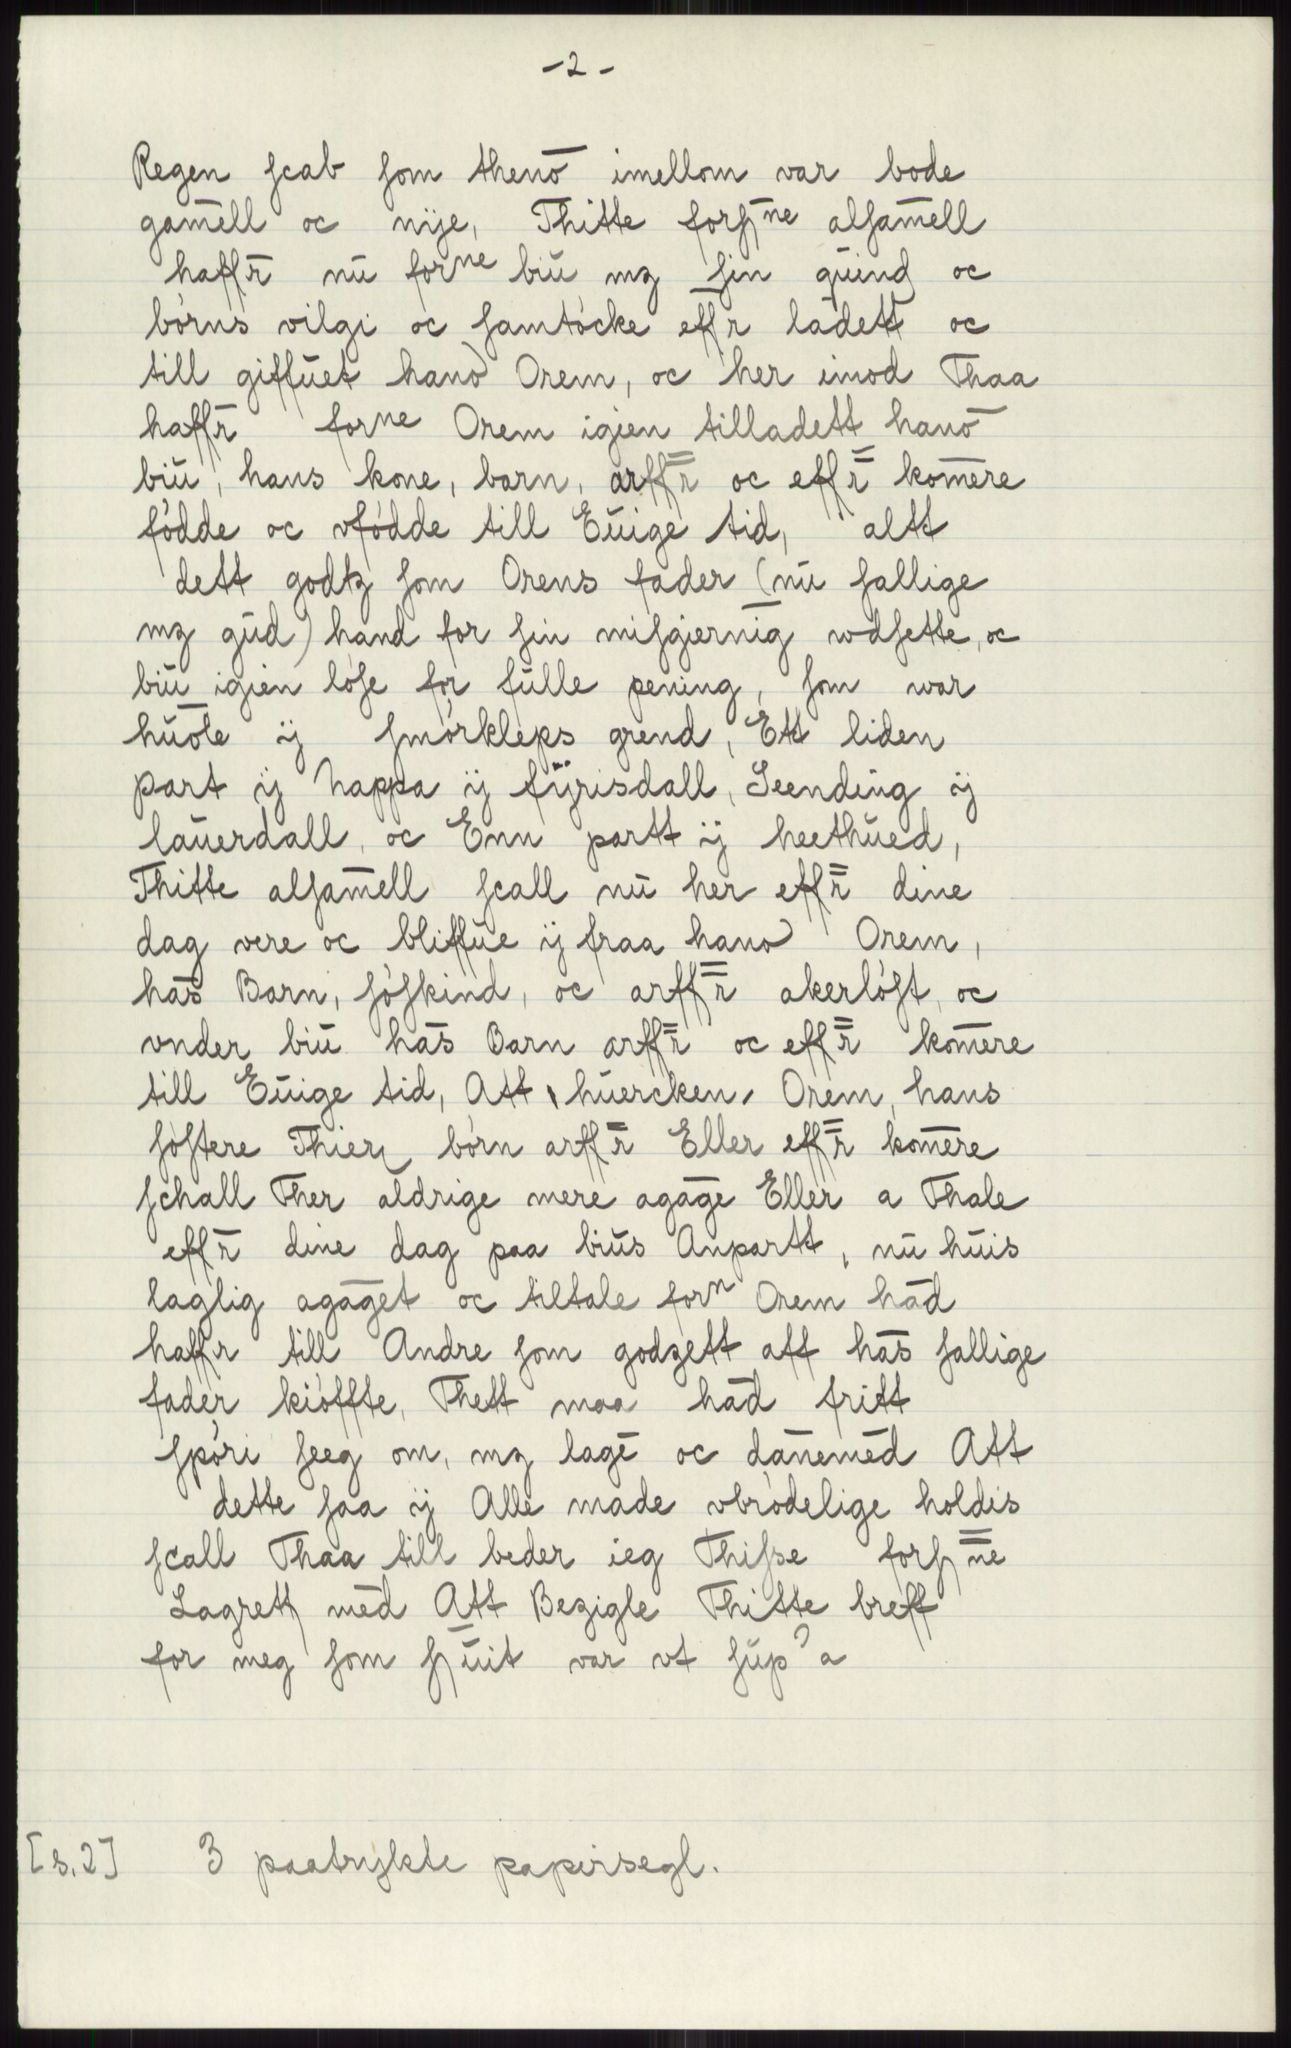 -2-
Regen scab som thenō imellom var bode
gamēll oc nije, Thitte forsᷠne alsamēll
haffr̄ nū forne biū mz sin qūind oc
bórns vilgi oc samtócke effr̄ ladett oc
till giffūet hanō Orem, oc her imod Thaa
haffr̄ forne Orem igien tilladett hanō
biū, hans kone, barn, arffr̄ oc effr̄ komēre
fódde oc vfódde till Eūige tid, altt
dett godtz som Orens fader (nū sallige
mz gūd) hand for sin misgiernīg wdsette, oc
biū igien lóse for fūlle pening, som war
hūōle ij smórkleps grend, Ett liden
part ij Nappa ij fÿrisdall, Seending ij
laūerdall, oc Enn partt ij heethūed,
Thitte alsamēll scall nū her effr̄ dine
dag vere oc bliffūe ij fraa hano Orem,
hās Barn, sóskind, oc arffr̄ akerlóst, oc
vnder biū hās Barn arffr̄ oc effr̄ komēre
till Eūige tid, Att hūercken Orem, hans
sóstere Thier börn arffr̄ Eller effr̄ komēre
schall Ther aldrige mere agāge Eller a Thale
effr̄ dine dag paa biūs Anpartt, nū hūis
laglig agāget oc tiltale forn Orem hād
haffr till Andre som godzett aff hās sallige
fader kióffte, Thett maa hād fritt
spóri seeg om, mz lagē oc dānemēd Att
dette saa ij Alle made vbródelige holdis
scall Thaa till beder ieg Thisse fors ne
Lagrett mēd Att Bezigle Thitte breff
for meg som sūit var vt sūp a
[s.2] 3 paatrykte papirsegl.